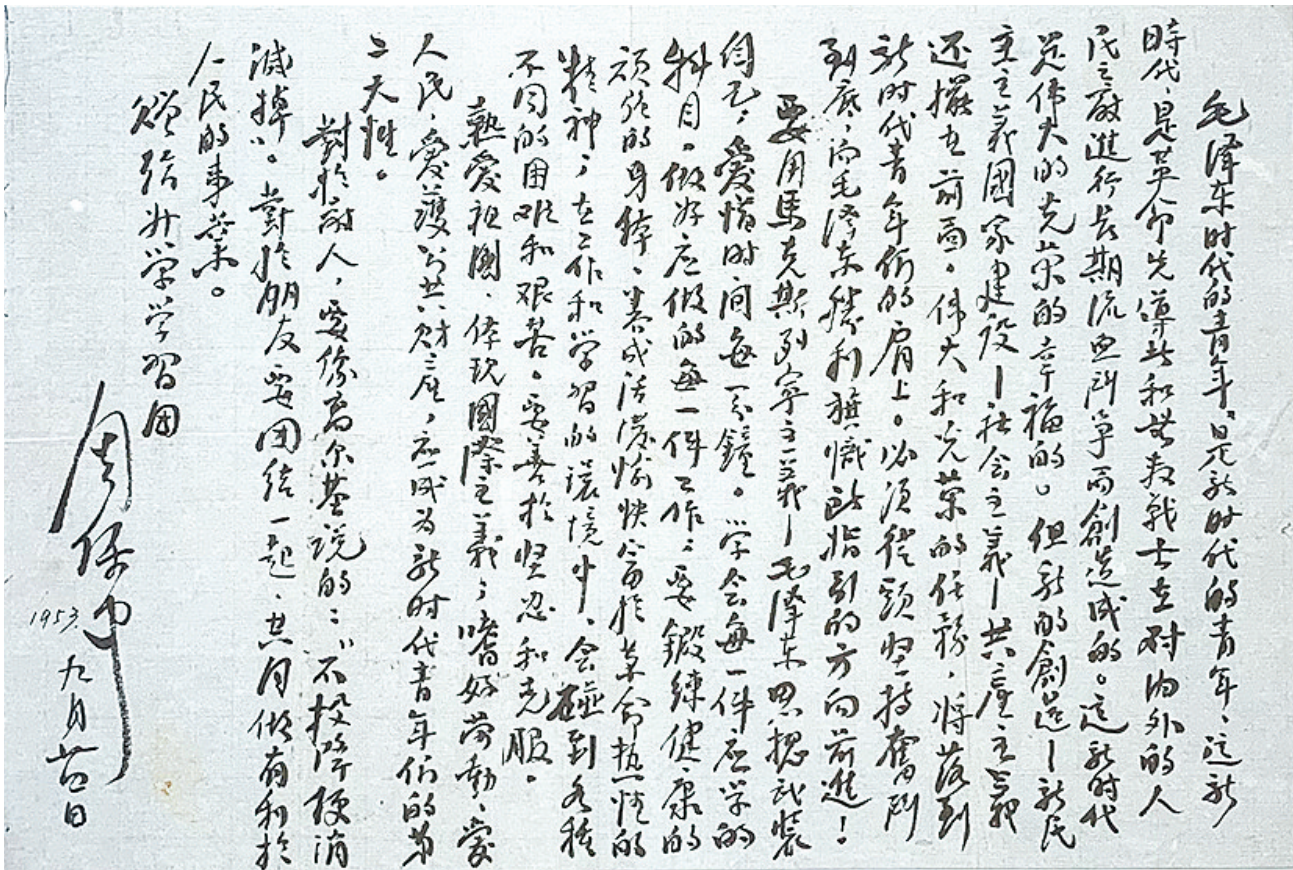 毛泽东时代的青年、是新时代的青年、这新
時代、是革命先導者和無数戰士在对内外的人
民之敵進行长期流血鬥争而創造成的。這新时代
是偉大的光荣的幸福的。但新的創造－新民
主主義國家建設－社会主義－共產主義
还擺在前面。伟大和光荣的任務、將落到
新时代青年们的肩上。必須從頭坚持奮鬥
到底，向毛澤东勝利旗幟所指引的方向前進！
要用馬克斯列寧主義－毛澤东思想武裝
自己，愛惜时间每一分鐘。学会每一件应学的
科目。做好应做的每一件工作；要鍛練健康的
身体、養成活潑愉快富於革命热情的
精神；在工作和学習的環境中、会碰到各種
不同的困难和艰苦。要善於坚忍和克服。
熱愛祖國、体現國際主義；嗜好劳動、愛
人民、愛護公共财產，应成为新时代青年们的第
二天性。
對於敵人，要像高尔基説的："不投降便消
滅掉"。對於朋友要团結一起、共同做有利於
人民的事業。
贈給升学学習团
周保中
1953
九月廿日